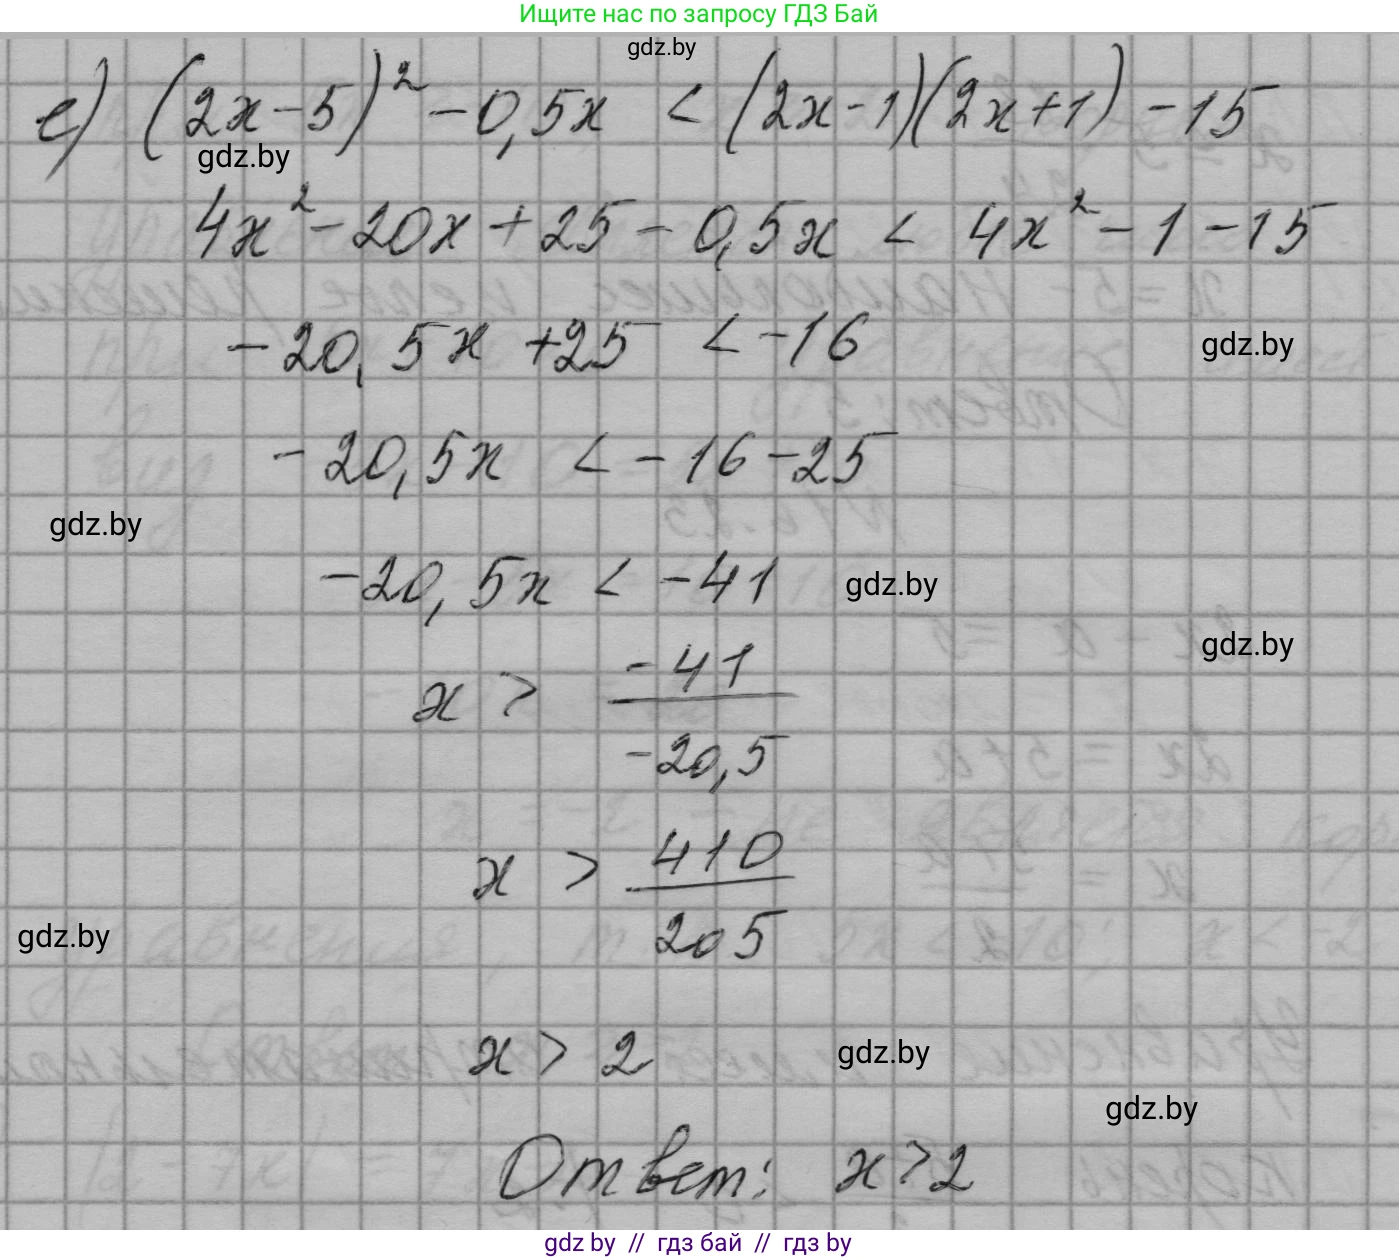 Ищите нас по запросу ГДЗ Бай
gdz.by
е) (2x-5)² - 0,5x < (2x-1)(2x+1) - 15
gdz.by
4x² - 20x + 25 - 0,5x < 4x² - 1 - 15
-20,5x + 25 < -16
gdz.by
-20,5x < -16 - 25
gdz.by
-20,5x < -41
gdz.by
gdz.by
x > -41/-20,5
x > 410/205
gdz.by
x > 2
gdz.by
gdz.by
Ответ: x > 2
gdz by // гдз бай // гдз by